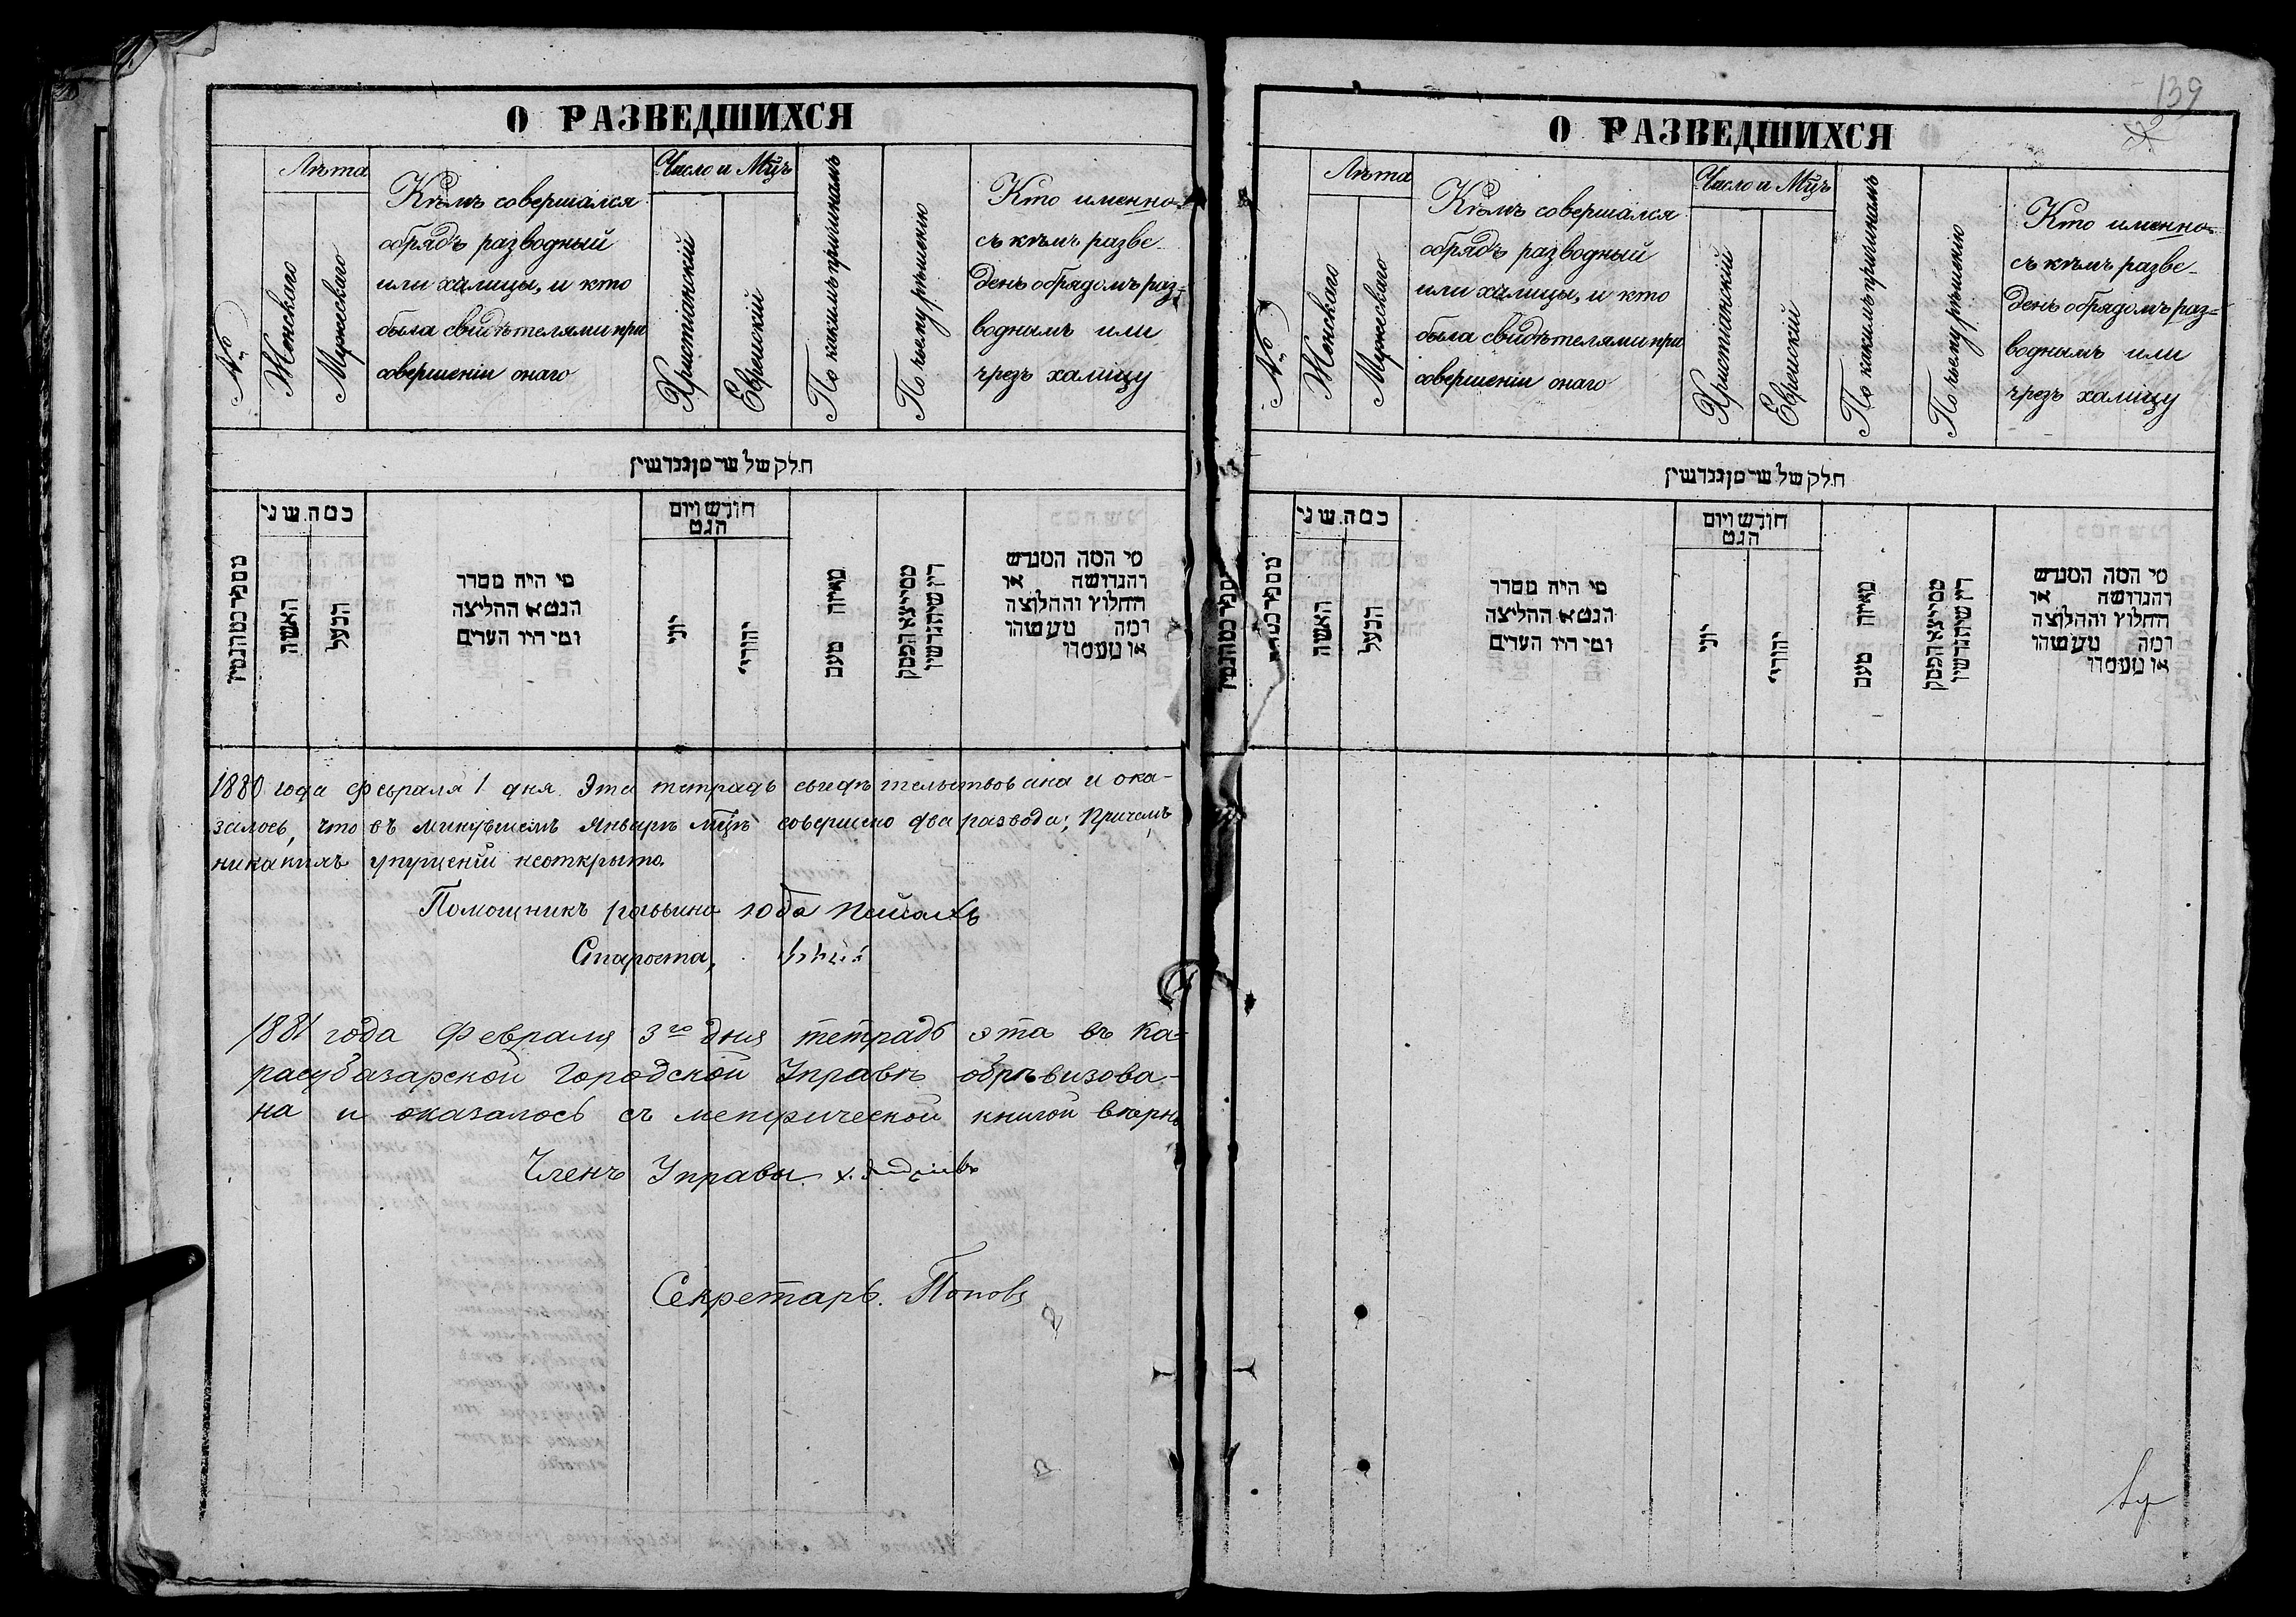 О РАЗВЕДШИХСЯ
№
Лѣта
Женскаго
Мужескаго
Кѣмъ совершался
обрядъ разводный
или халицы, и кто
была свидѣтелями при
совершеніи онаго
Число и Мцъ
Христіанскій
Еврейскій
По какимъ причинамъ
По чьему рѣшенію
Кто именно
съ кѣмъ разве-
денъ обрядомъ раз-
воднымъ или
чрезъ халицу
חלק של שרסן גנרושין
כמה שני
האשה
הבעל
מי היה מסדר
הגט א ההליצה
ומי היו העדים
חודש ויום
הגט
יוני
יהודי
מאיזה טעם
מי המה המגרש
והגרושה או
החלוץ והחלוצה
ומה מעשהו
או מעמדו
1880 года Февраля 1 дня Эта тетрадь свидѣтельствована и ока-
залось, что въ минувшемъ Январѣ мцѣ совершено два развода; причемъ
никакихъ упущеній неоткрыто.
Помощникъ раввина Юда Пейсахъ
Староста,
1881 года Февраля 3го дня тетрадь эта въ Ка-
расубазарской Городской Управѣ обревизова-
на и оказалось съ метрической книгой вѣрно
Членъ Управы Х.
Секретарь. Поповъ
139
О РАЗВЕДШИХСЯ
№
Лѣта
Женскаго
Мужескаго
Кѣмъ совершался
обрядъ разводный
или халицы, и кто
была свидѣтелями при
совершеніи онаго
Число и Мцъ
Христіанскій
Еврейскій
По какимъ причинамъ
По чьему рѣшенію
Кто именно
съ кѣмъ разве-
денъ обрядомъ раз-
воднымъ или
чрезъ халицу
חלק של שרסן גנרושין
כמה שני
האשה
הבעל
מי היה מסדר
הגט א ההליצה
ומי היו העדים
חודש ויום
הגט
יוני
יהודי
מאיזה טעם
מי המה המגרש
והגרושה או
החלוץ והחלוצה
ומה מעשהו
או מעמדו